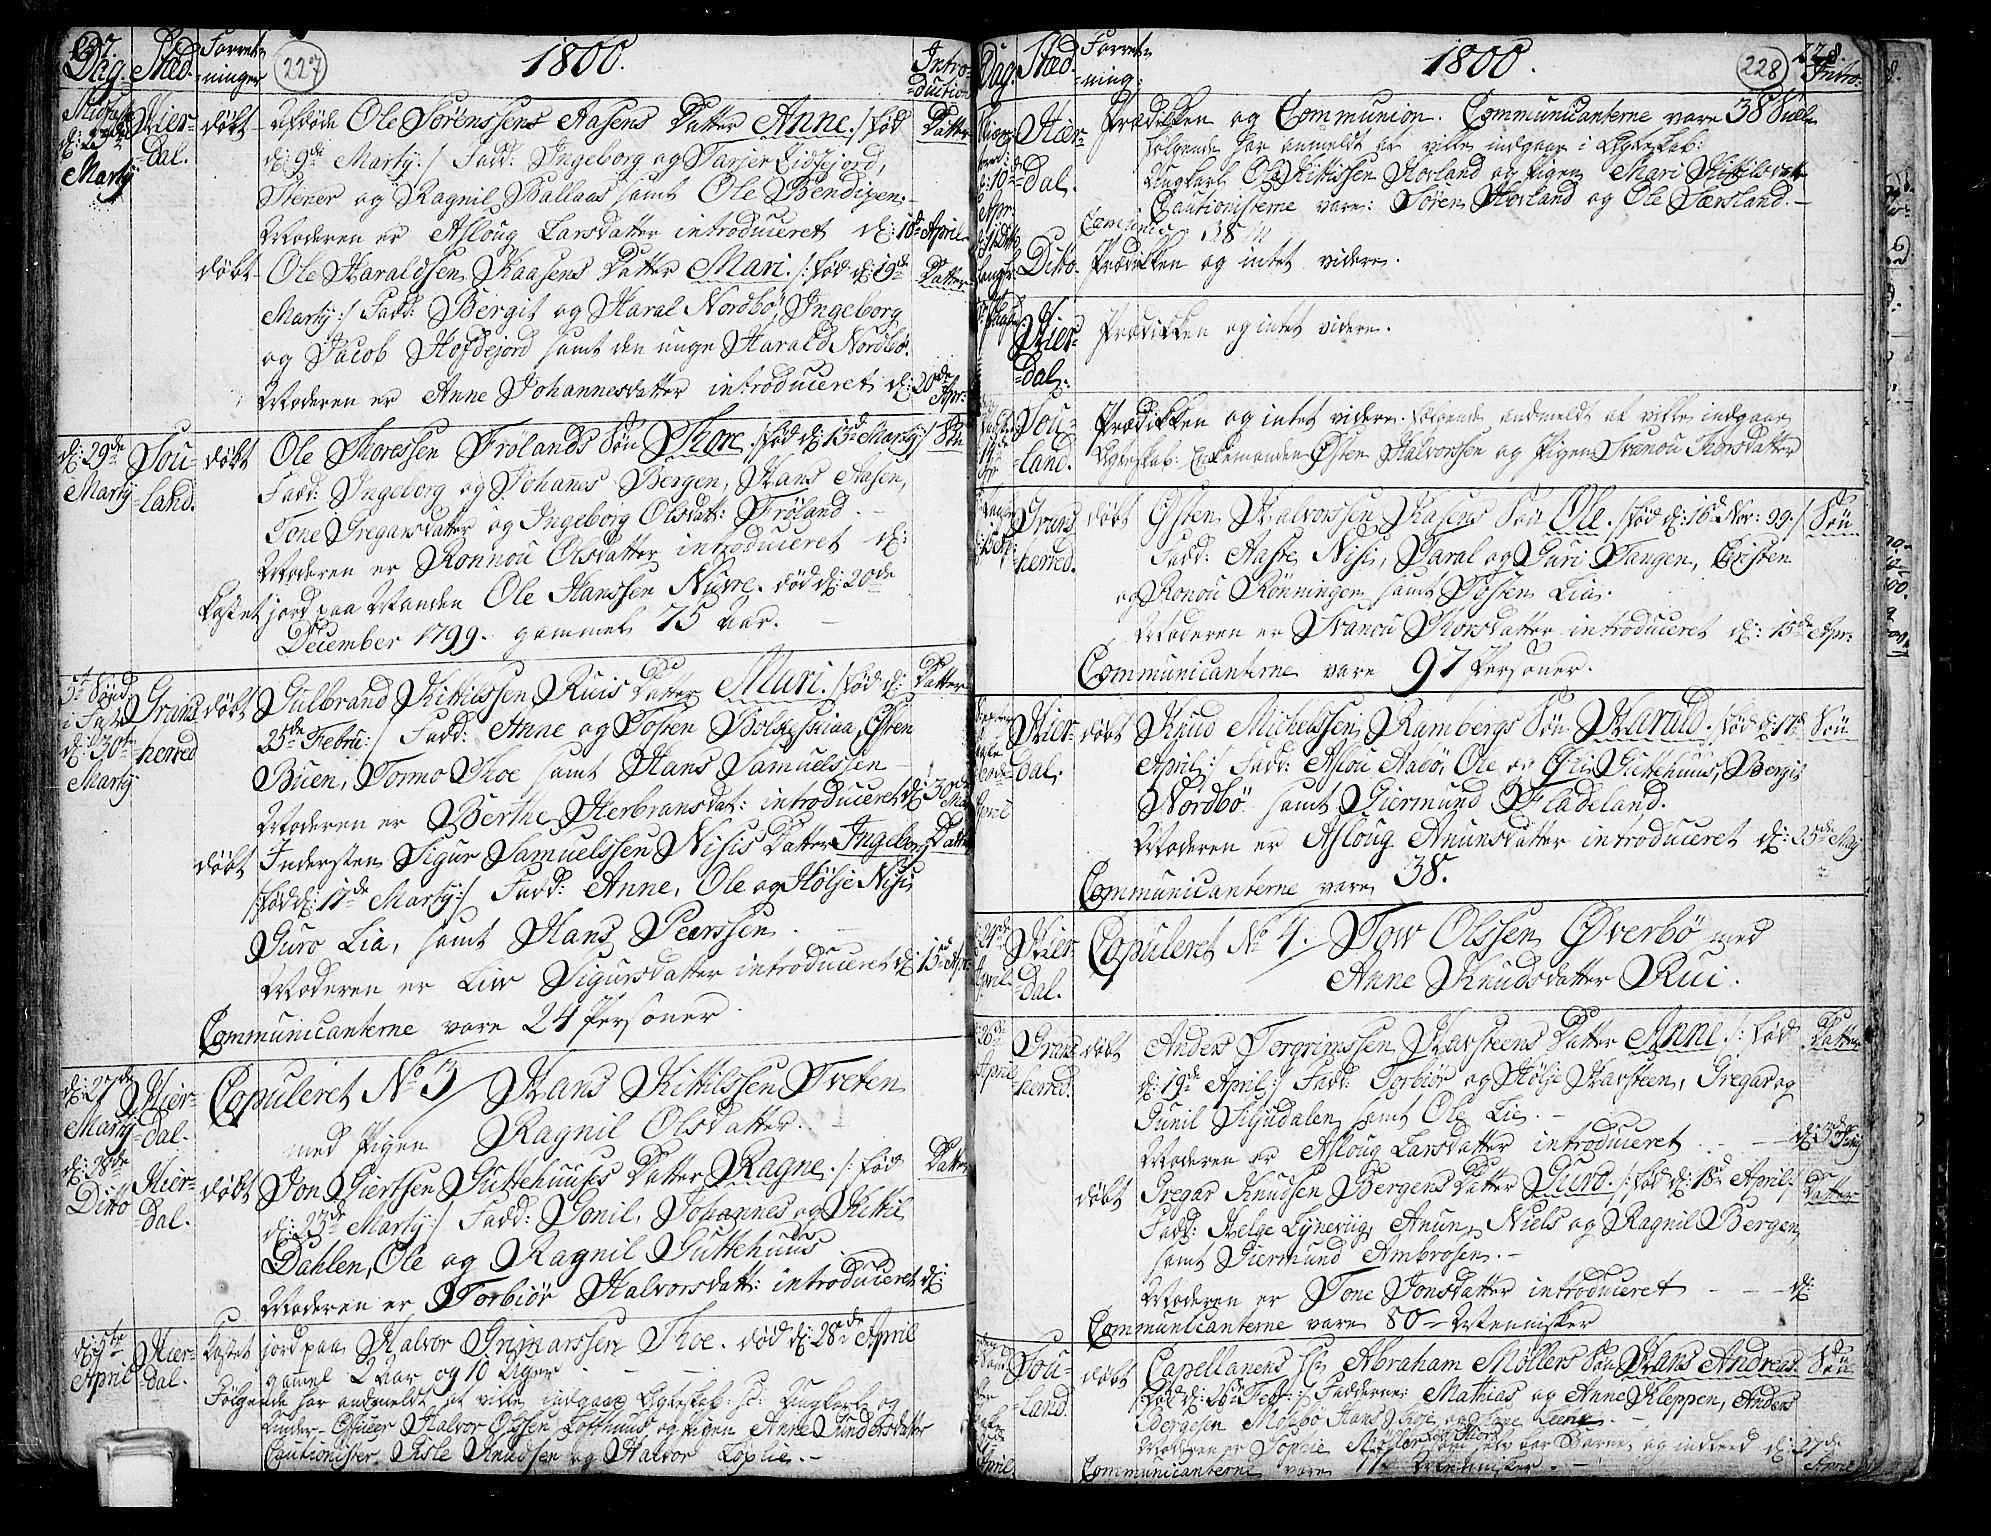 227.
Dag. Sted. Forret-
ninger
227
1800.
Intro-
duction
Midfaste
d: 23de
Martij
Hier-
dal.
døbt
Afdøde Ole Sørenssens Aasens Datter Anne. /: fød
Datter
d: 9de Martij :/ Fadd: Ingeborg og Tarjer Eidsfjord,
Stener og Ragnil Ballaas samt Ole Bendixen.
Moderen er Asloug Larsdatter introduceret d: 10de April
døbt
Ole Haraldsen Kaasens Datter Mari. /: fød d: 19de
Datter
Martij :/ Fadd: Bergit og Haral Nordbø, Ingeborg
og Jacob Hofdejord samt den unge Harald Nordbø.
Moderen er Anne Johannesdatter introduceret d: 20de
Apr:
d: 29de
Martij
Sou-
land.
døbt
Ole Thoressen Frølands Søn Thore. /: fød d: 13de Martij :/ Søn
Fadd: Ingeborg og Johanes Bergen, Hans Aasen,
Tone Gregarsdatter og Ingeborg Olsdatt: Frøland.
Moderen er Ronnou Olsdatter introduceret d:
Kastet jord paa Manden Ole Hanssen Nurre. død d: 20de
December 1799. gammel 75 Aar.
5te Sønd
i Faste
d: 30te
Martij
Grans-
herred
døbt
Gulbrand Kittilssen Ruis Datter Mari. /: fød d:
Datter
25de Febru: :/ Fadd: Anne og Tosten Bolkesuiaa, Østen
Buen, Tormo Thoe samt Hans Samuelssen
Moderen er Berthe Herbransdat: introduceret d: 30te
Ma
døbt
Indersten Sigur Samuelssen Nisis Datter Ingeborg Datter
/: fød d: 17de Martij :/ Fadd: Anne, Ole og Hølje Nisi
Guro Lia, samt Hans Peerssen.
Moderen er Liw Sigursdatter introduceret d: 15de Apr:
Communicanterne vare 24 Personer.
d: 27de
Martij
Hier-
dal.
Copuleret No 3 / Hans Kittilssen Tveten
med Pigen Ragnil Olsdatter.
d: 28de
Ditto
Hier-
dal.
døbt
Jon Giertsen Guttehuuses Datter Ragne. /: fød
Datter
d: 23de Martij :/ Fadd: Gonil, Johannes og Kittil
Dahlen, Ole og Ragnil Guttehuus
Moderen er Torbiør Halvorsdatt: introduceret d:
d: 5te
April
Hier-
dal.
Kastet jord paa Halvor Grimarssen Thoe. død d: 28de April
gamel 2 Aar og 10 Uger
Følgende har anmeldt at ville indgaae Egteskab: Sc: Ungkarl og
Under-Officer Halvor Olssen Lofthuus og Pigen Anne Gundersdatter
Cautionister Gisle Knudssen og Halvor Løplie.
Dag. Sted. Forret-
ning:
1800.
228
228.
Intro:
d: 10de
Apr:
Hier-
dal.
Prædikken og Communion. Communicanterne vare 38 Siæle
følgende har anmeldt at ville indgaae i Egteskab:
Ungkarl Ole Kittilssen Hovland og Pigen Mari Kittilsdat
Cautionisterne vare: Søren Hovland og Ole Særsland.
Communic: 38
Ditto.
Prædikken og intet videre.
Hier-
dal.
Prædikken og intet videre.
Sou-
land.
Prædikken og intet videre. følgende andmeldt at ville indgaae
Egteskab: Enkemanden Østen Halvorssen og Pigen Svanou Thorsdatter
Grans-
herred.
døbt
Østen Halvorssen Kasens Søn Ole. /: fød d: 16de Nov: 99. :/ Søn
Fadd: Aaste Nisi, Taral og Guri Tangen, Christen
og Ronou Rønningen samt Tosten Lia.
Moderen er Svanou Thorsdatter introduceret d: 15de Apr:
Communicanterne vare 97 Personer.
April
Hier-
dal.
døbt
Knud Michelssen Rambergs Søn Harald. /: fød d: 17de
Søn
April :/ Fadd: Aslou Aabø, Ole og Gunil Guttehuus, Bergit
Nordbø samt Giermund Fladeland.
Moderen er Asloug Anunsdatter introduceret d: 25de May
Communicanterne vare 38.
d: 24de
April
Hier-
dal.
Copuleret No 4. / Tow Olssen Øverbø med
Anne Knudsdatter Rui.
26de
April
Grans-
herred.
døbt
Anders Torgrimssen Havsteens Datter Anne. /: fød
Datter
d: 19de April :/ Fadd: Torbiør og Hølje Havsteen, Gregar og
Gunil Siljudalen samt Ole Lie.
Moderen er Asloug Larsdatter introduceret - - - d: 3de Junij
døbt
Gregar Knudsen Bergens Datter Guro. /: fød d: 18de April :/
Datter
Fadd: Helge Lyneviig, Anun, Niels og Ragnil Bergen,
samt Giermund Ambrosen.
Moderen er Tone Jonsdatter introduceret - - - d:
Communicanterne vare 80 Mennisker
Sou-
land.
April
døbt
Capellanens Hr Abraham Møllers Søn Hans Andreas
Søn
/: fød d: 26de Febr: :/ Fadderne: Mathias og Anne Kleppen, Anders
Børgesen Moebø Hans J Thoe, og
Moderen er Sophie Møller som selv bar Barnet og indled d: 27de
April
Communicanterne vare Mennisker.